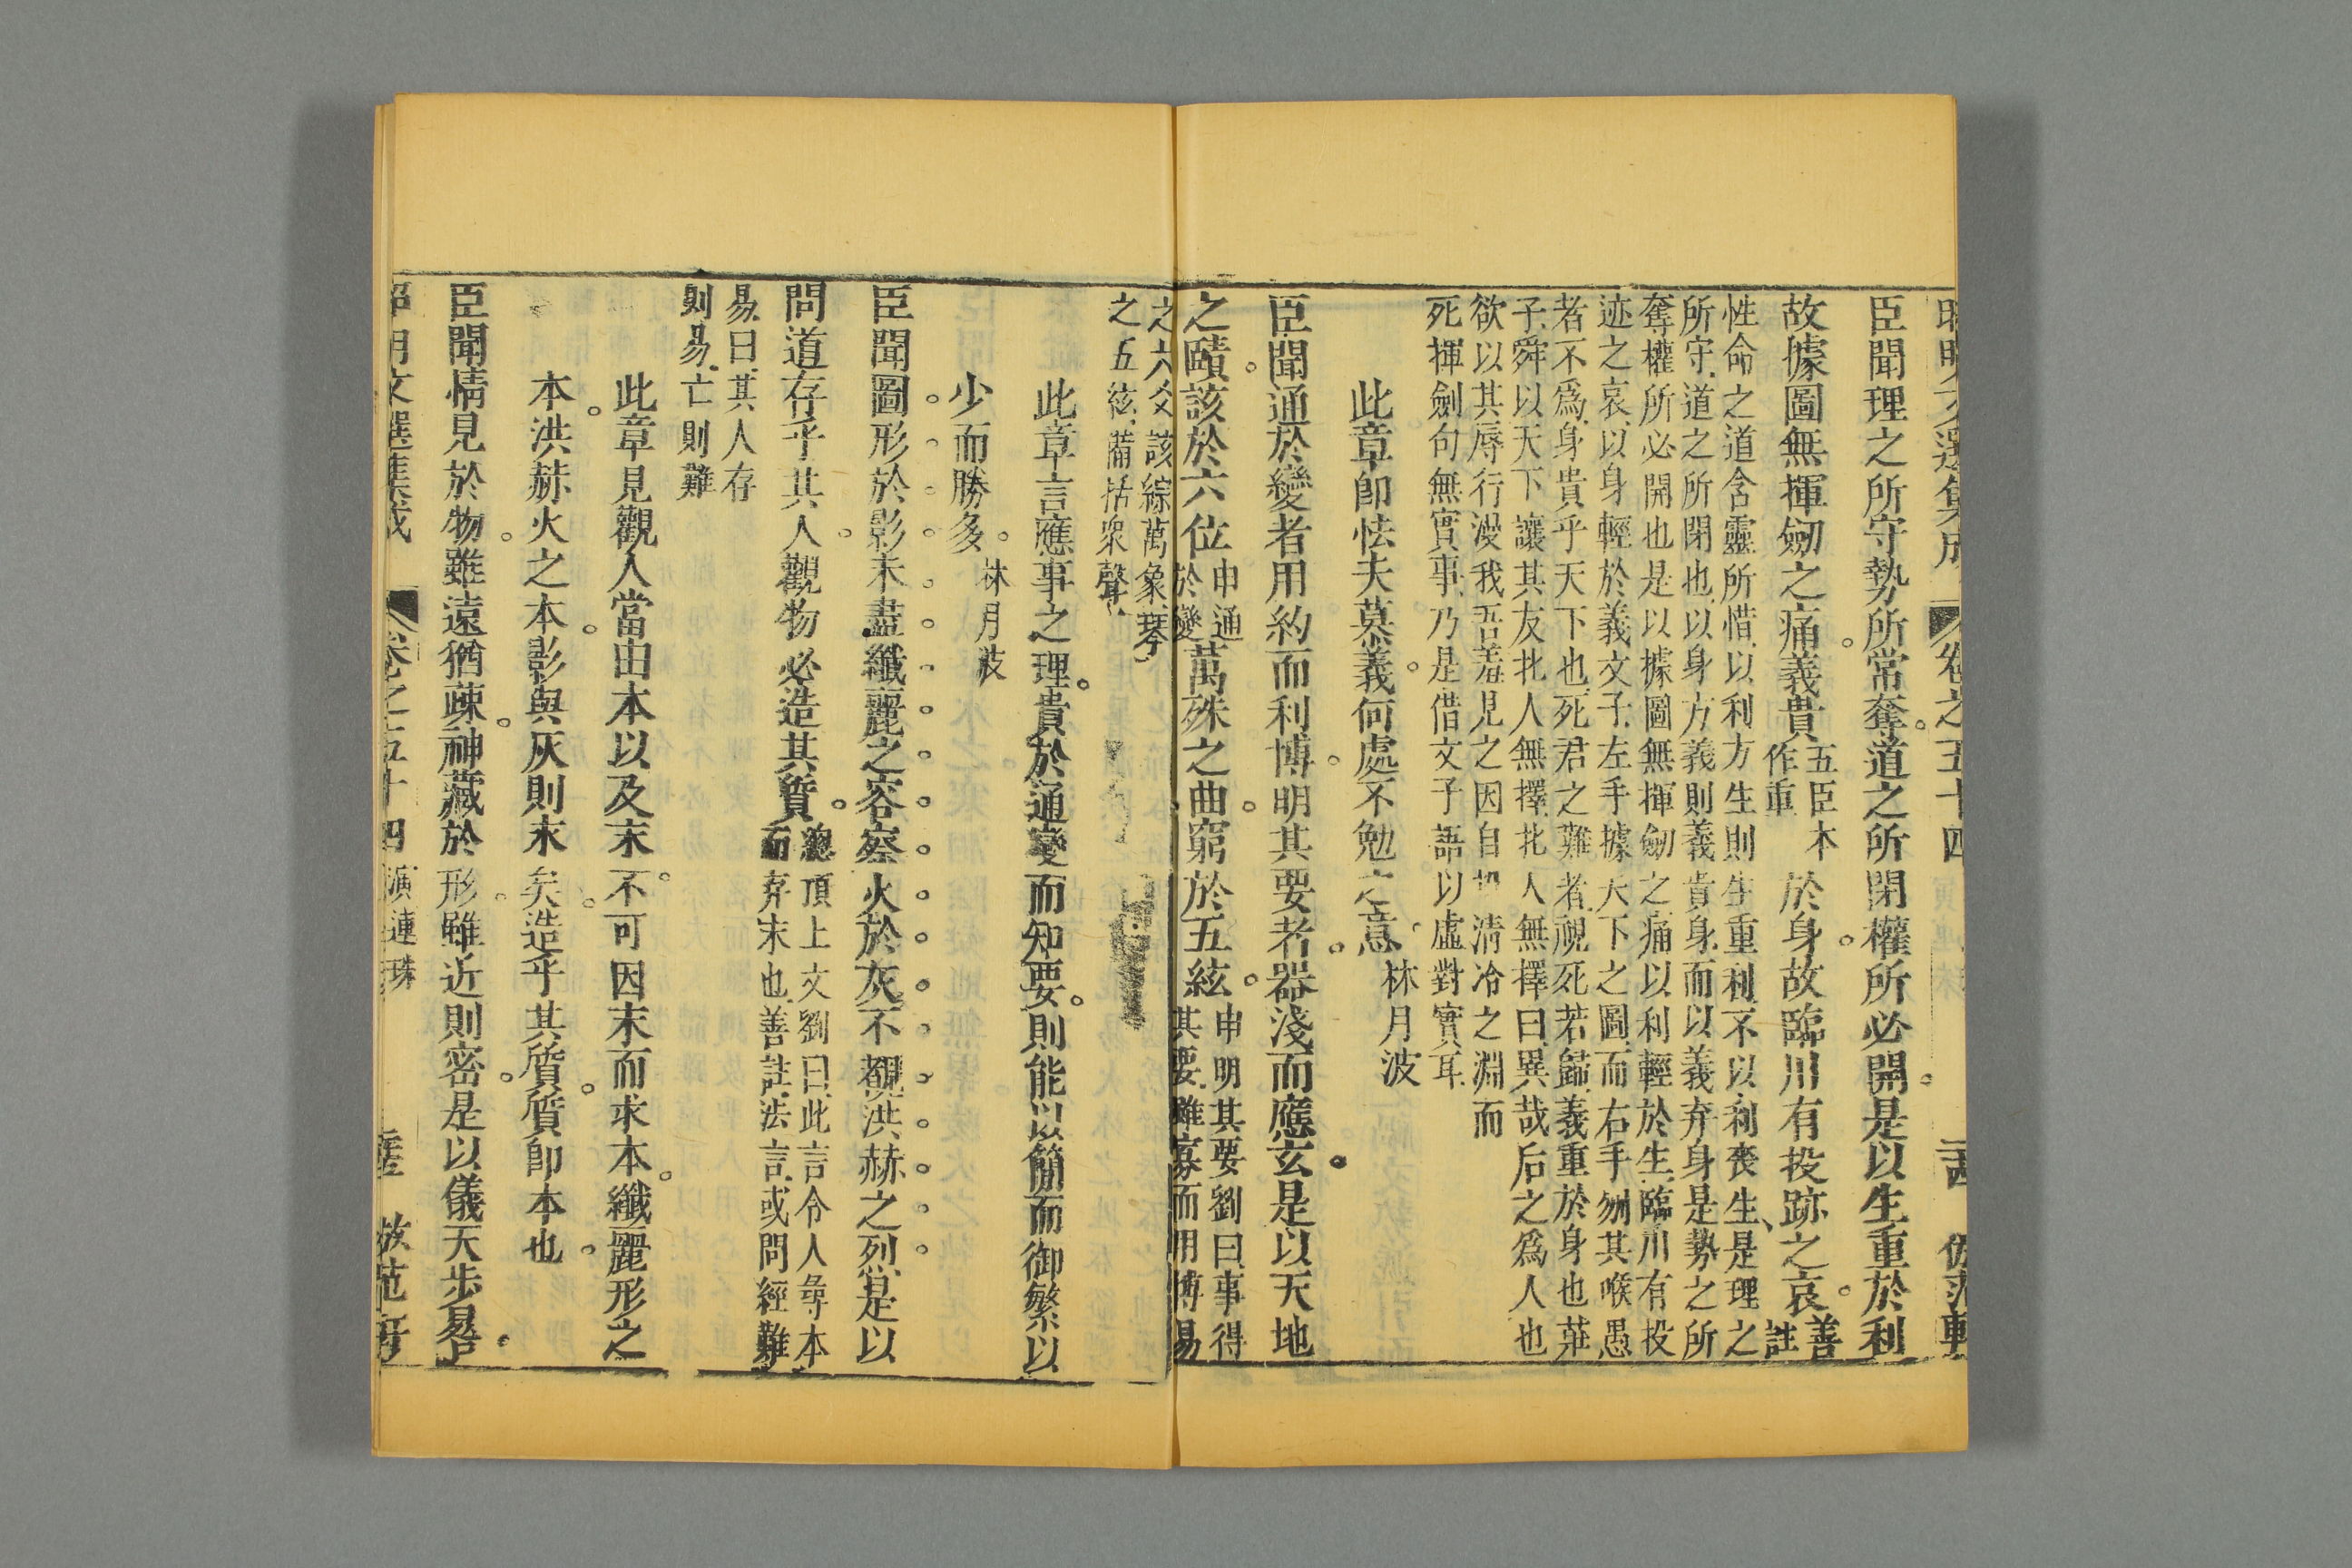 昭明文選集成 卷之五十四 倣范軒
臣聞理之所守勢所常奪道之所閉權所必開是以生重於利
故據圖無揮劒之痛義貴五臣本作重於身故臨川有投跡之哀善註
性命之道含靈所惜以利方生則生重利不以利喪生是理之
所守道之所閉也以身方義則義貴身而以義弃身是勢之所
奪權所必開也是以據圖無揮劒之痛以利輕於生臨川有投
迹之哀以身輕於義文子左手據天下之圖而右手刎其喉愚
者不爲身貴乎天下也死君之難者視死若歸義重於身也莊
子舜以天下讓其友北人無擇北人無擇曰異哉后之爲人也
欲以其辱行漫我吾羞見之因自投清冷之淵而
死揮劍句無實事乃是借文子語以虛對實耳
此章即怯夫慕義何處不勉之意 林月波
臣聞通於變者用約而利博明其要者器淺而應玄是以天地
之賾該於六位申通於變萬殊之曲窮於五絃申明其要劉曰事得其要雖寡而用博易
之六爻該綜萬象琴
之五絃備括衆聲
此章言應事之理貴於通變而知要則能以簡而御繁以
少而勝多 林月波
臣聞圖形於影未盡纖麗之容察火於灰不覩洪赫之烈是以
問道存乎其人觀物必造其質總頂上文劉曰此言令人尋本而弃末也善註法言或問經難
易曰其人存
則易亡則難
此章見觀人當由本以及末不可因末而求本纖麗形之
本洪赫火之本影與灰則末矣造乎其質質即本也
臣聞情見於物雖遠猶疎神藏於形雖近則密是以儀天步晷
昭明文選集成 卷之五十四 演連珠 倣范軒